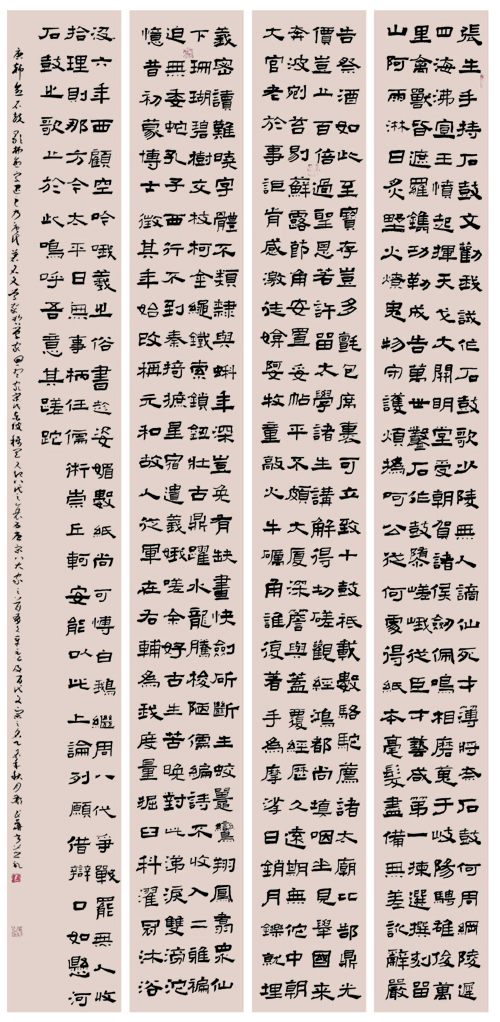 張生手持石鼓文勸我識作石鼓歌少陵無人謫仙死才薄將奈石鼓何周綱陵遲
四海沸宣王憤起揮天戈大開明堂受朝賀諸侯劍佩鳴相磨蒐于岐陽騁雄俊萬
里禽獸皆遮羅鐫功勒成告萬世鑿石作鼓隳嵯峨從臣才藝咸第一揀選撰刻留
山阿雨淋日炙野火燎鬼物守護煩撝呵公從何處得紙本毫髮盡備無差訛辭嚴
義密讀難曉字體不類隸與蝌年深豈免有缺畫快劍斫斷生蛟鼉鸞翔鳳翥眾仙
下珊瑚碧樹交枝柯金繩鐵索鎖鈕壯古鼎躍水龍騰梭陋儒編詩不收入二雅褊
迫無委蛇孔子西行不到秦掎摭星宿遺羲娥嗟余好古生苦晚對此涕淚雙滂沱
憶昔初蒙博士徵其年始改稱元和故人從軍在右輔為我度量掘臼科濯冠沐浴
告祭酒如此至寶存豈多氈包席裹可立致十鼓祇載數駱駝薦諸太廟比郜鼎光
價豈止百倍過聖恩若許留太學諸生講解得切磋觀經鴻都尚填咽坐見舉國來
奔波剜苔剔蘚露節角安置妥帖平不頗大廈深簷與蓋覆經歷久遠期無佗中朝
大官老於事詎肯感激徒媕婀牧童敲火牛礪角誰復著手為摩挲日銷月鑠就埋
沒六年西顧空吟哦羲之俗書趁姿媚數紙尚可博白鵝繼周八代爭戰罷無人收
拾理則那方今太平日無事柄任儒術崇丘軻安能以此上論列願借辯口如懸河
石鼓之歌止於此嗚呼吾意其蹉跎